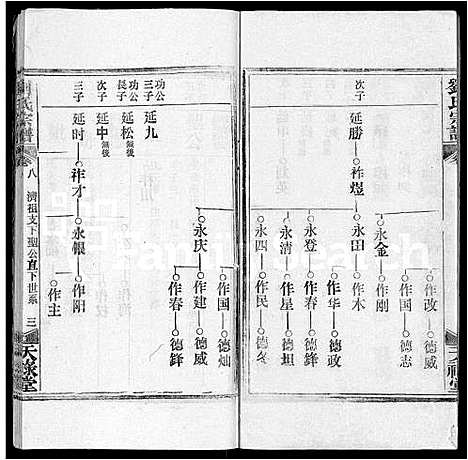 劉氏宗譜
次子
延勝
祚煜
永金
作改
德威
作國
德志
作剛
永田
作木
永登
作华
德政
永清
作星
德坦
永四
作民
永庆
作国
德灿
作建
德威
作春
德鋒
功公
三子
延九
功公
長子
延松無後
次子
延中無後
三子
延时
祚才
永银
作阳
作主
劉氏宗譜
卷八
濟祖支下聖公直下世系
三
天祿堂